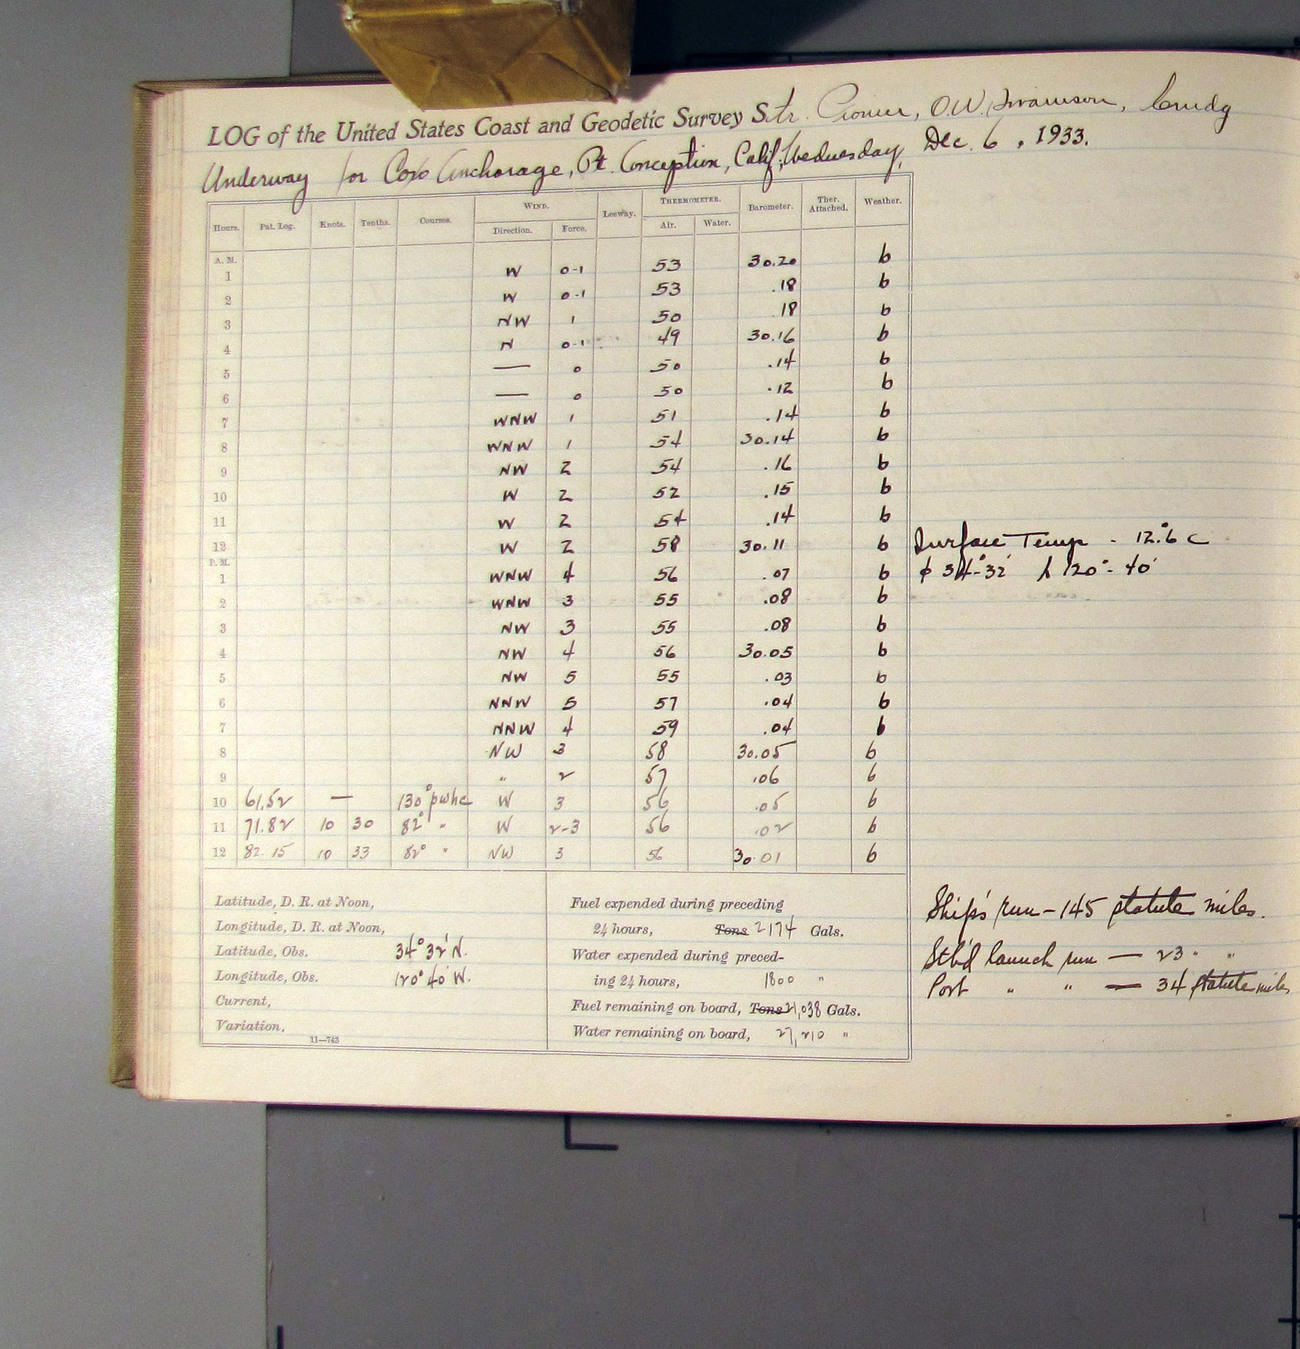 LOG of the United States Coast and Geodetic Survey Str. Pioneer, O.W. Swainson, Comdg
Underway for Coxo Anchorage, Pt. Conception, Calif, Wednesday, Dec. 6, 1933.
Hours. Pat. Log. Knots. Tenths. Course. WIND. Leeway. THERMOMETER. Barometer. Ther. Attached. Weather.
Direction. Force. Air. Water.
A. M.
1 W 0-1 53 30.20 b
2 W 0-1 53 .18 b
3 NW 1 50 .18 b
4 N 0-1 49 30.16 b
5 — 0 50 .14 b
6 — 0 50 .12 b
7 WNW 1 51 .14 b
8 WNW 1 54 30.14 b
9 NW 2 54 .16 b
10 W 2 52 .15 b
11 W 2 54 .14 b
12 W 2 58 30.11 b Surface Temp - 12.°6 C
P. M.
1 WNW 4 56 .07 b ϕ 34°-32' λ 120°-40'
2 WNW 3 55 .08 b
3 NW 3 55 .08 b
4 NW 4 56 30.05 b
5 NW 5 55 .03 b
6 NNW 5 57 .04 b
7 NNW 4 59 .04 b
8 NW 3 58 30.05 b
9 " 2 57 .06 b
10 61.52 — 130° pwhc W 3 56 .05 b
11 71.82 10 30 82° " W 2-3 56 .02 b
12 82.15 10 33 82° " NW 3 56 30.01 b
Latitude, D. R. at Noon,
Longitude, D. R. at Noon,
Latitude, Obs. 34° 32' N.
Longitude, Obs. 120° 40' W.
Current,
Variation,
11—743
Fuel expended during preceding
24 hours, Tons 2174 Gals.
Water expended during preced-
ing 24 hours, 1800 "
Fuel remaining on board, Tons 21,038 Gals.
Water remaining on board, 27,210 "
Ship's run - 145 statute miles.
Stb'd launch run — 23 " "
Port " " — 34 statute miles